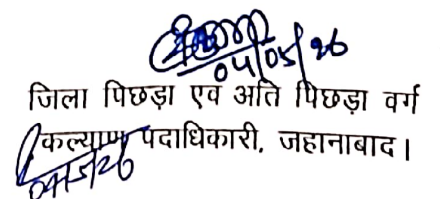 04/05/26
जिला पिछड़ा एव अति पिछड़ा वर्ग
कल्याण पदाधिकारी, जहानाबाद।
04/5/26